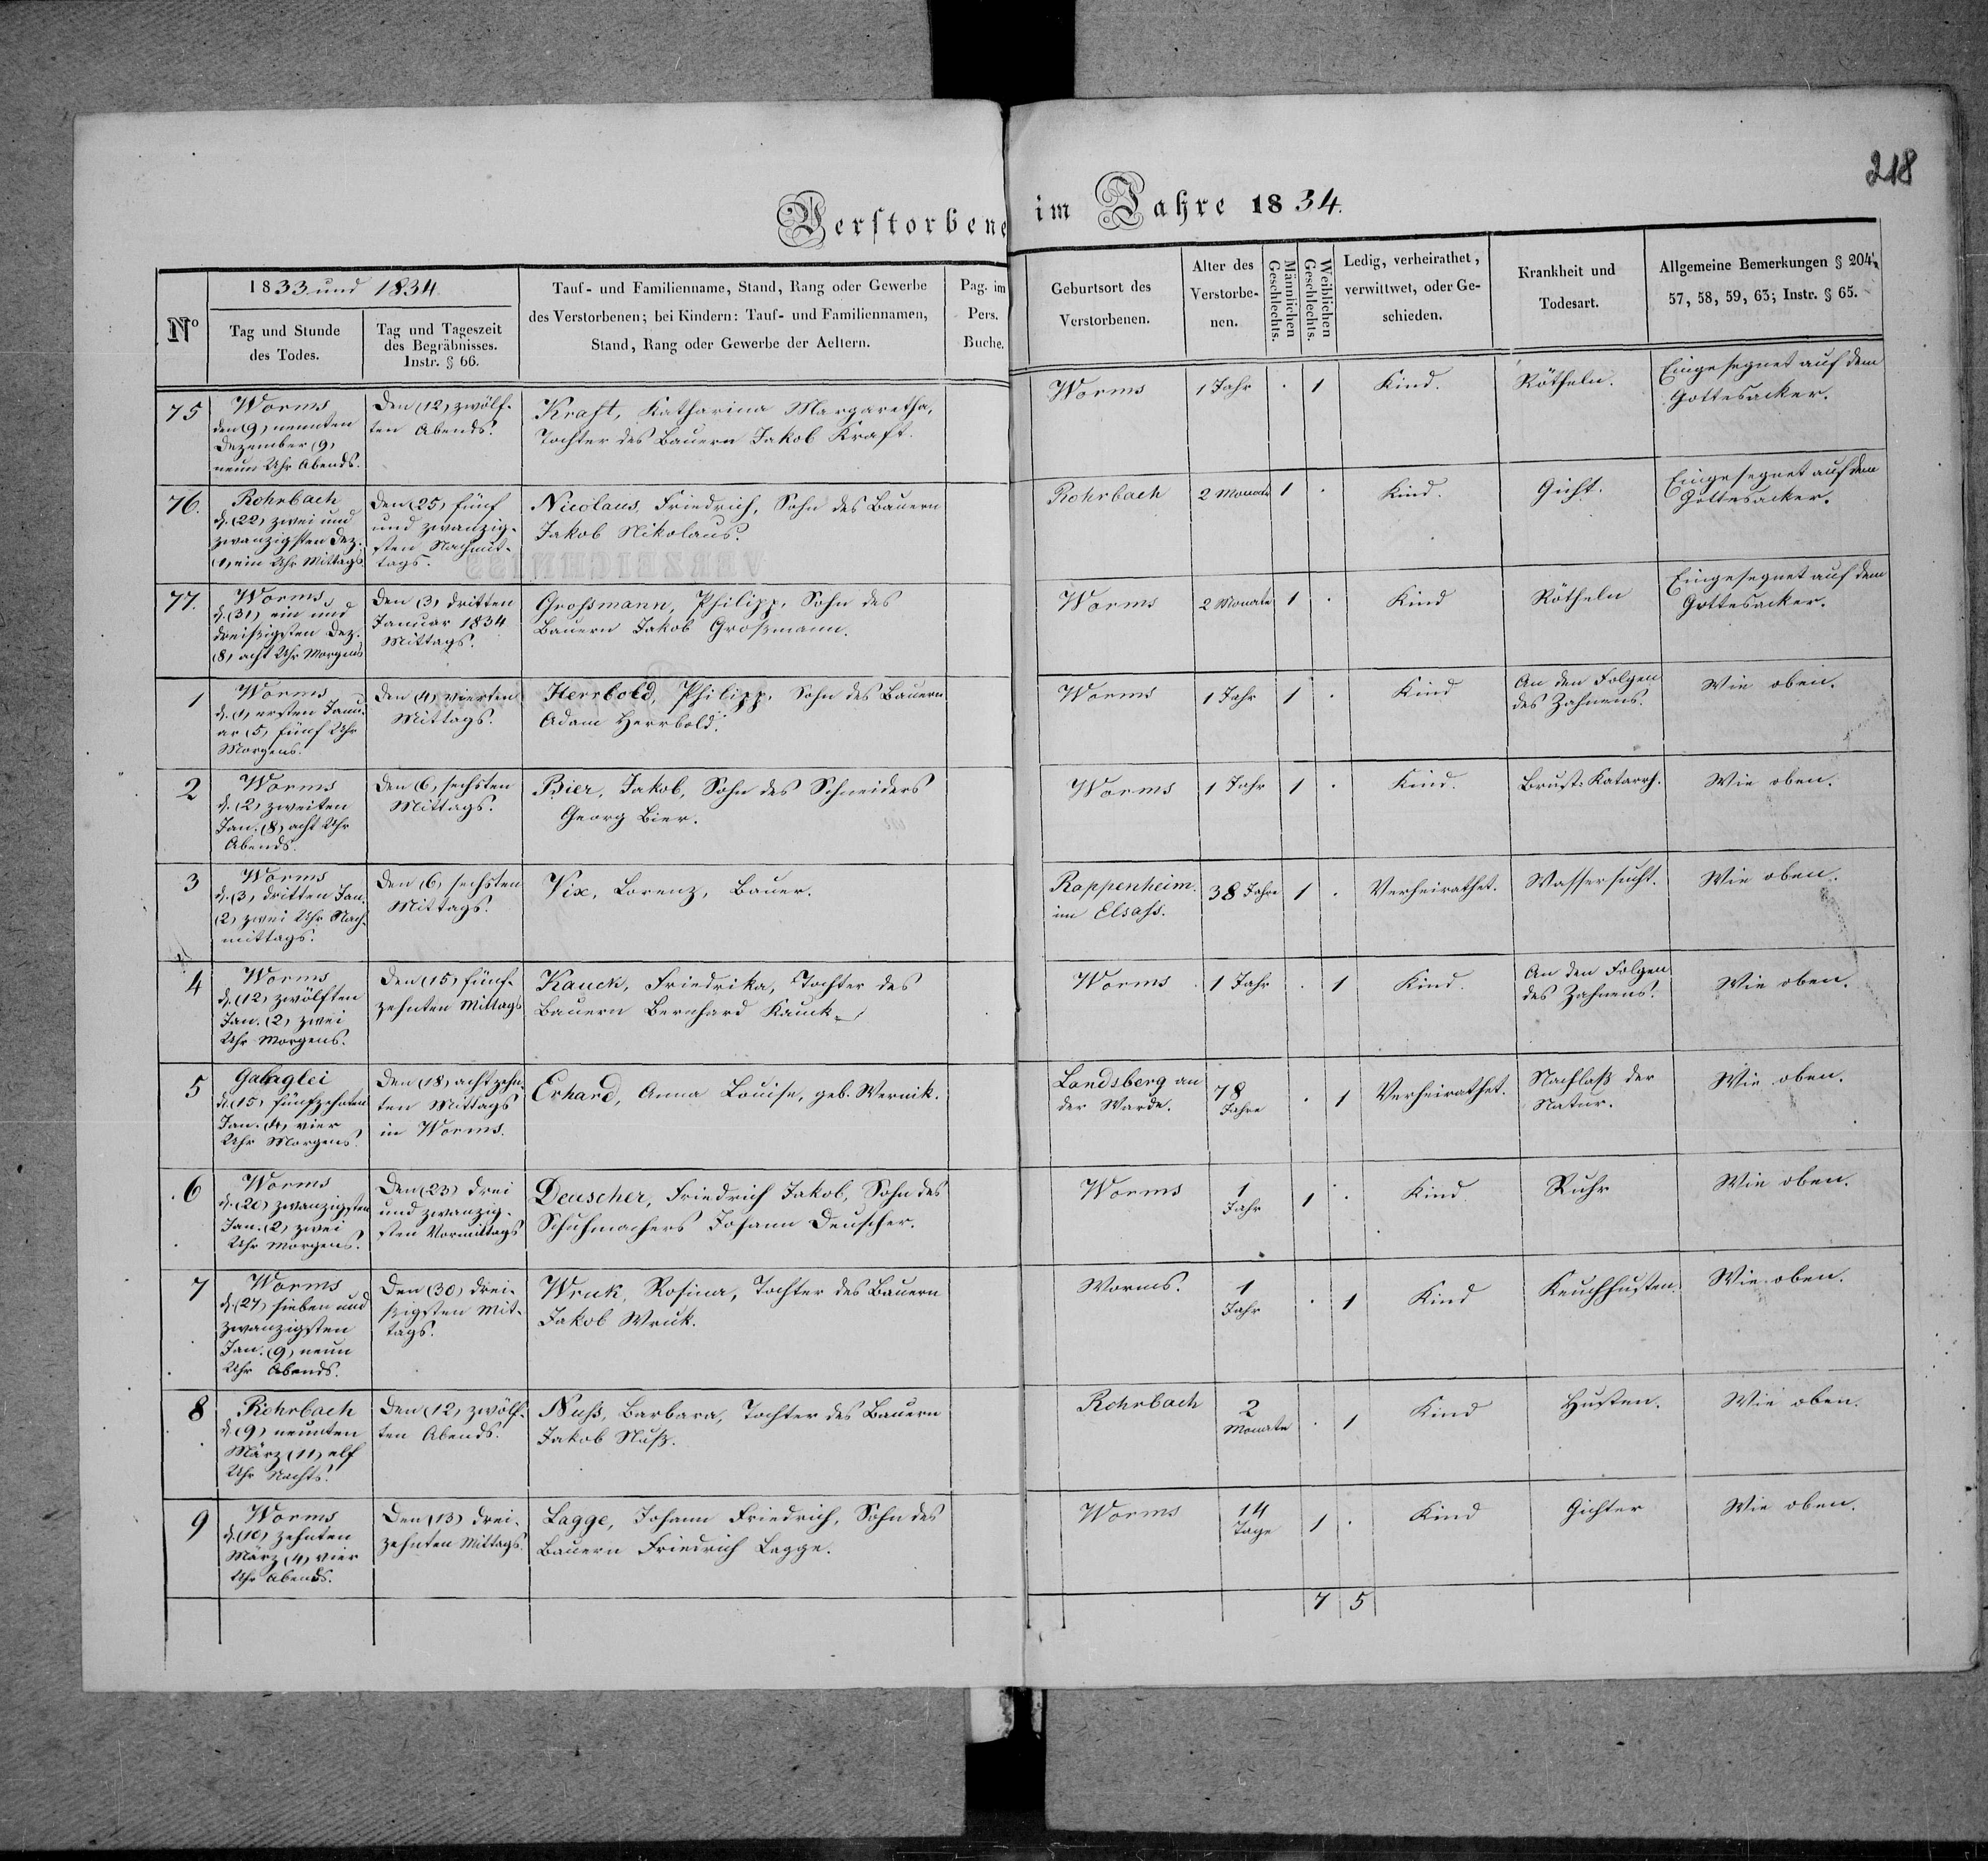 218
Verstorbene im Jahre 1834.
1833 und 1834
Nº
Tag und Stunde
des Todes.
Tag und Tageszeit
des Begräbnisses.
Instr. § 66.
Tauf- und Familienname, Stand, Rang oder Gewerbe
des Verstorbenen; bei Kindern: Tauf- und Familiennamen,
Stand, Rang oder Gewerbe der Aeltern.
Pag. im
Pers.
Buche.
Geburtsort des
Verstorbenen.
Alter des
Verstorbe-
nen.
Männlichen
Geschlechts.
Weiblichen
Geschlechts.
Ledig, verheirathet,
verwittwet, oder Ge-
schieden.
Krankheit und
Todesart.
Allgemeine Bemerkungen § 204,
57, 58, 59, 63; Instr. § 65.
75
Worms
den (9) neunten
Dezember (9)
neun Uhr Abends.
Den (12) zwölf-
ten Abends.
Kraft, Katharina Margaretha,
Tochter des Bauern Jakob Kraft.
Worms
1 Jahr
1
Kind.
Rötheln.
Eingesegnet auf dem
Gottesacker.
76.
Rohrbach
d. (22) zwei und
zwanzigsten Dez.
(1) ein Uhr Mittags.
Den (25) fünf
und zwanzig-
sten Nachmit-
tags.
Nicolaus, Friedrich, Sohn des Bauern
Jakob Nikolaus.
Rohrbach
2 Monate
1
Kind.
Gicht.
Eingesegnet auf dem
Gottesacker.
77.
Worms
d. (31) ein und
dreißigsten Dez.
(8) acht Uhr Morgens
Den (3) dritten
Januar 1834
Mittags.
Großmann, Philipp, Sohn des
Bauern Jakob Großmann.
Worms
2 Monate
1
Kind
Rötheln
Eingesegnet auf dem
Gottesacker.
1
Worms
d. (1) ersten Janu-
ar (5) fünf Uhr
Morgens.
Den (4) vierten
Mittags.
Herrbold, Philipp, Sohn des Bauern
Adam Herrbold.
Worms
1 Jahr
1
Kind
An den Folgen
des Zahnens.
Wie oben.
2
Worms
d. (2) zweiten
Jan. (8) acht Uhr
Abends.
Den (6) sechsten
Mittags.
Bier, Jakob, Sohn des Schneiders
Georg Bier.
Worms
1 Jahr
1
Kind.
Brust-Katarrh.
Wie oben.
3
Worms
d. (3) dritten Jan.
(2) zwei Uhr Nach-
mittags.
Den (6) sechsten
Mittags.
Vix, Lorenz, Bauer.
Rappenheim.
im Elsaß.
38 Jahre
1
Verheirathet.
Wassersucht.
Wie oben.
4
Worms
d. (12) zwölften
Jan. (2) zwei
Uhr Morgens.
Den (15) fünf-
zehnten Mittags
Kauck, Friedrika, Tochter des
Bauern Bernhard Kauck
Worms
1 Jahr
1
Kind.
An den Folgen
des Zahnens.
Wie oben.
5
d. (15) fünfzehnten
Jan. (4) vier
Uhr Morgens.
Den (18) achtzehn-
ten Mittags
in Worms.
Erhard, Anna Louise, geb. Wernik.
Landsberg an
der Warde.
78
Jahre
1
Verheirathet.
Nachlaß der
Natur.
Wie oben.
6
Worms
d. (20) zwanzigsten
Jan. (2) zwei
Uhr Morgens.
Den (23) drei
und zwanzig-
sten Vormittags
Deuscher, Friedrich Jakob, Sohn des
Schuhmachers Johann Deuscher.
Worms
1
Jahr
1
Kind.
Ruhr
Wie oben.
7
Worms
d. (27) sieben und
zwanzigsten
Jan. (9) neun
Uhr Abends.
Den (30) drei-
ßigsten Mit-
tags.
Wruk, Rosina, Tochter des Bauern
Jakob Wruk.
Worms.
1
Jahr
1
Kind
Keuchhusten.
Wie oben.
8
Rohrbach
d. (9) neunten
März (11) elf
Uhr Nachts.
Den (12) zwölf-
ten Abends.
Nuß, Barbara, Tochter des Bauern
Jakob Nuß.
Rohrbach
2
Monate
1
Kind
Husten.
Wie oben.
9
Worms
d. (10) zehnten
März (4) vier
Uhr Abends.
Den (13) drei-
zehnten Mittags.
Lagge, Johann Friedrich, Sohn des
Bauern Friedrich Lagge.
Worms
14
Tage
1
Kind
Gichter
Wie oben.
7
5